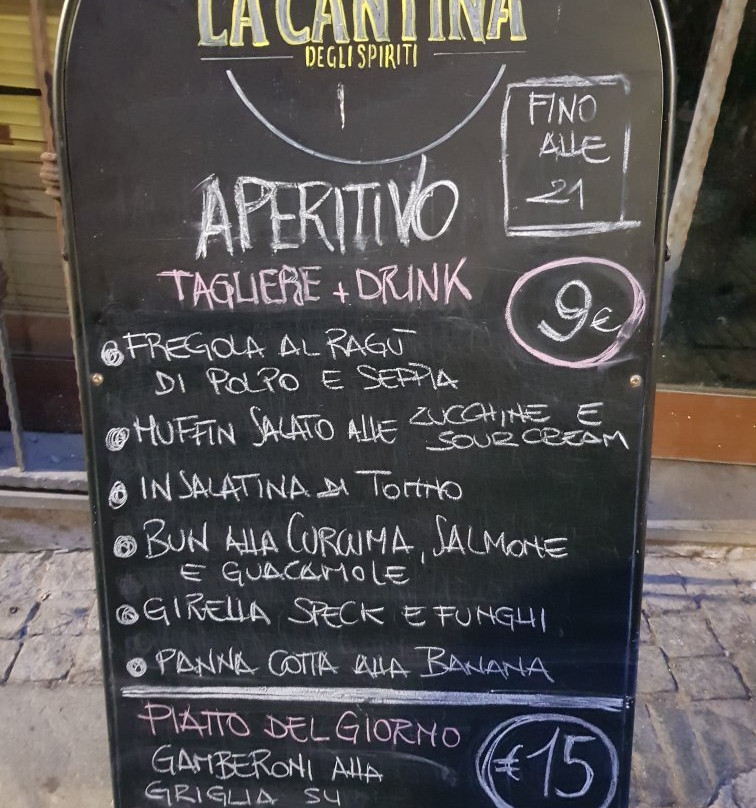 LA CANTINA
DEGLI SPIRITI
FINO
ALLE
21
APERITIVO
TAGLIERE + DRINK
9€
FREGOLA AL RAGÙ
DI POLPO E SEPPIA
MUFFIN SALATO ALLE ZUCCHINE E
SOUR CREAM
INSALATINA DI TONNO
BUN ALLA CURCUMA, SALMONE
E GUACAMOLE
GIRELLA SPECK E FUNGHI
PANNA COTTA ALLA BANANA
PIATTO DEL GIORNO
€15
GAMBERONI ALLA
GRIGLIA SU